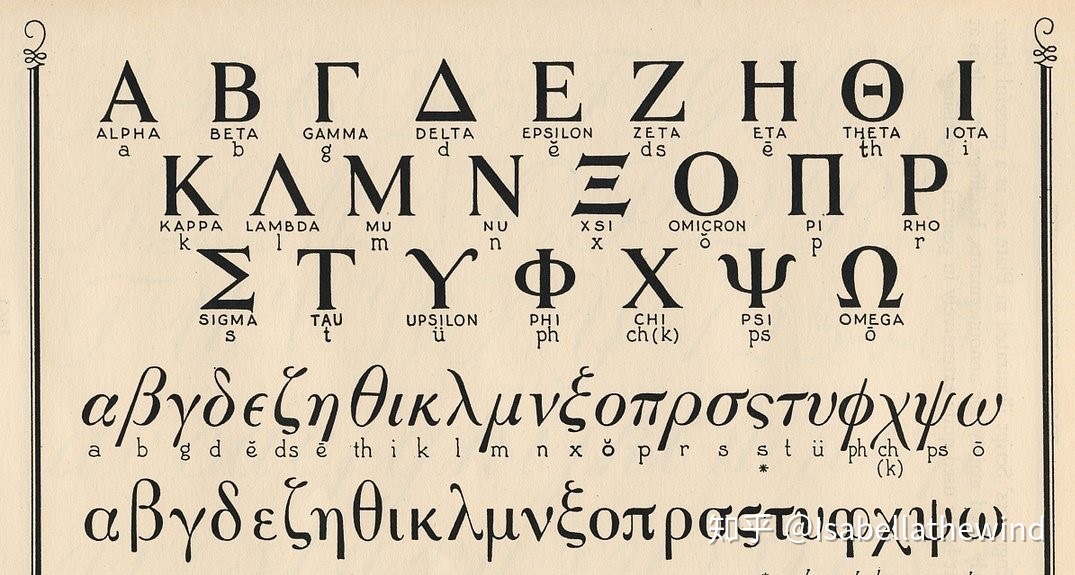 Α Β Γ Δ Ε Ζ Η Θ Ι
ALPHA BETA GAMMA DELTA EPSILON ZETA ETA THETA IOTA
a b g d ĕ ds ē th i
Κ Λ Μ Ν Ξ Ο Π Ρ
KAPPA LAMBDA MU NU XSI OMICRON PI RHO
k l m n x ŏ p r
Σ Τ Υ Φ Χ Ψ Ω
SIGMA TAU UPSILON PHI CHI PSI OMEGA
s t ü ph ch(k) ps ō
αβγδεζηθικλμνξοπρσςτυφχψω
a b g d ĕ ds ē th i k l m n x ŏ p r s s t ü ph ch ps ō
* (k)
αβγδεζηθικλμνξοπρσςτυφχψω
知乎 @Isabellathewind